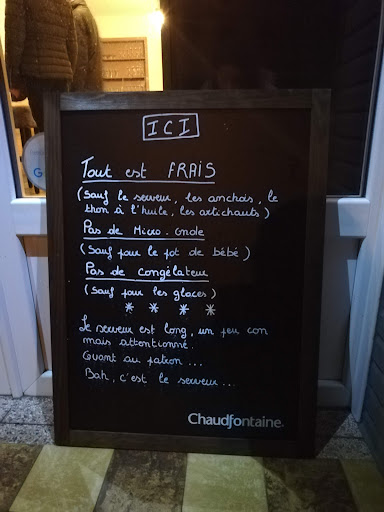 ICI
Tout est FRAIS
(Sauf le serveur, les anchois, le
thon à l'huile, les artichauts)
Pas de Micro-Onde
(Sauf pour le pot de bébé)
Pas de congélateur
(Sauf pour les glaces)
* * * *
Le serveur est long, un peu con
mais attentionné.
Quant au patron ...
Bah, c'est le serveur ...
Chaudfontaine